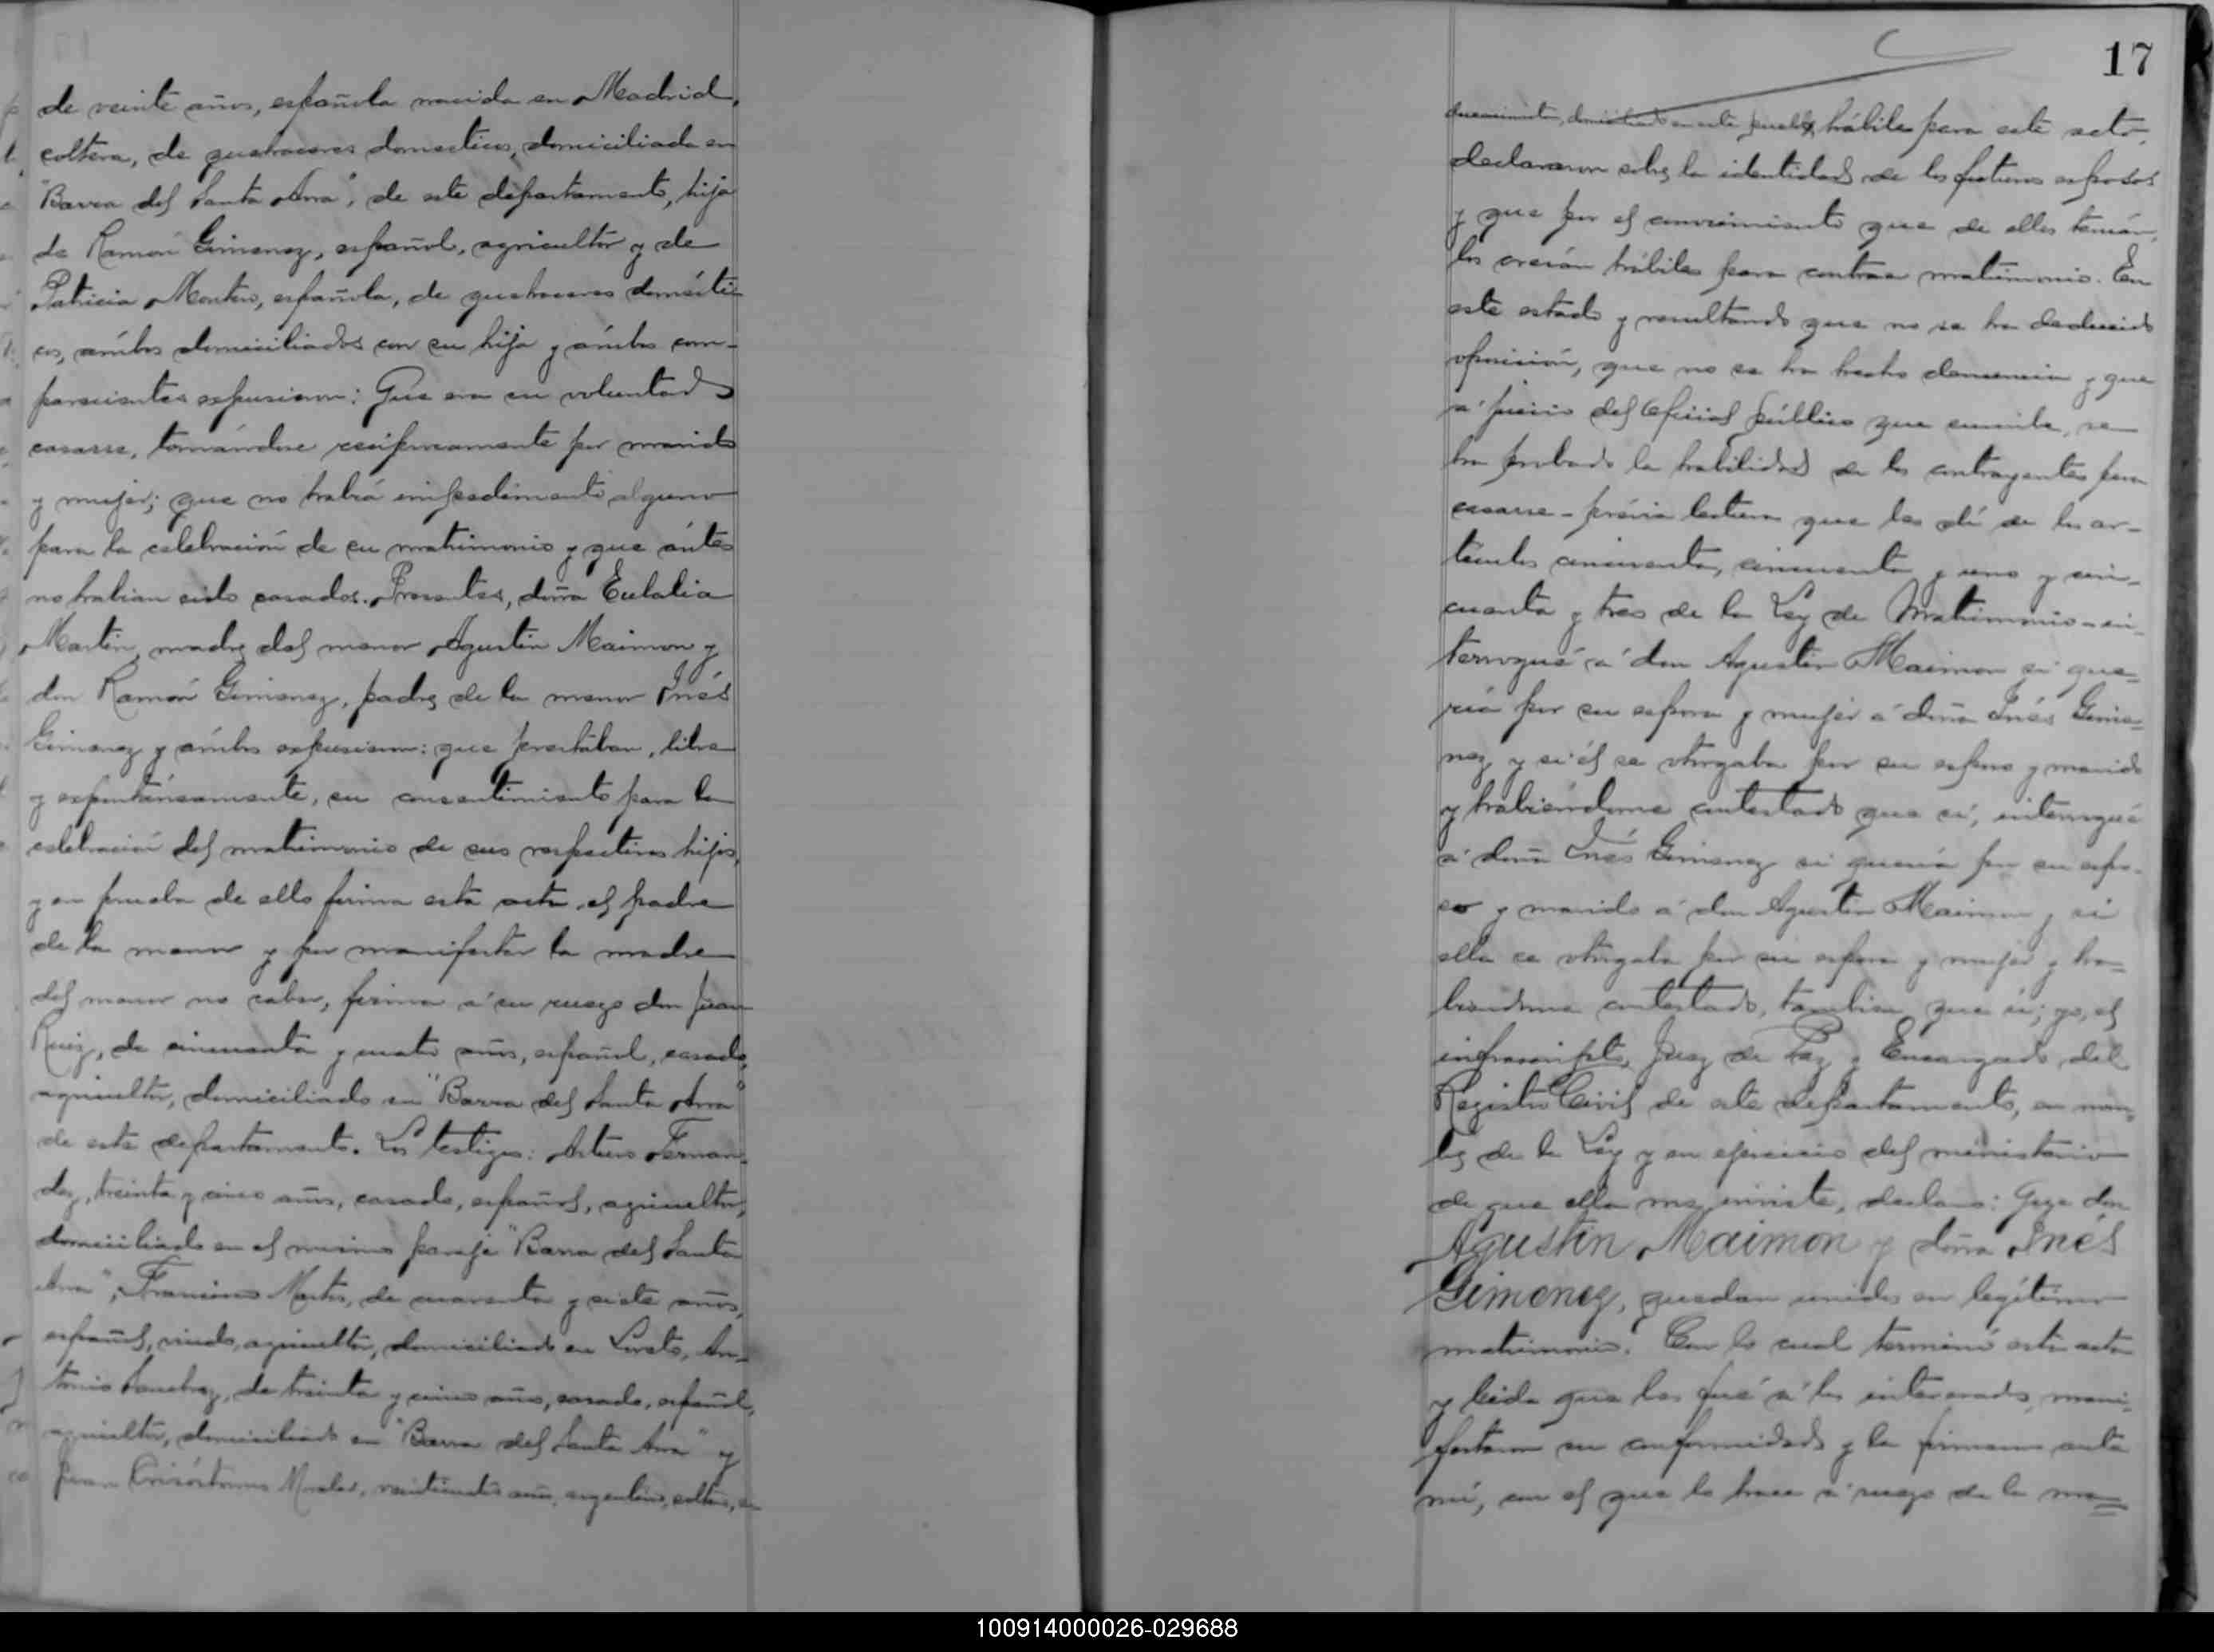 de veinte años, española nacida en Madrid,
soltera, de quehaceres domesticos, domiciliada en
"Barra del Santa Ana", de este departamento, hija
de Ramón Gimenez, español, agricultor y de
Patricia Montero, española, de quehaceres domésti-
cos, ámbos domiciliados con su hija y ámbos com-
parecientes expusieron: Que era su voluntad
casarse, tomándose recíprocamente por marido
y mujer; que no habiá impedimento alguno
para la celebración de su matrimonio y que ántes
no habian sido casados. Presentes, doña Eulalia
Martin, madre del menor Agustin Maimon y
don Ramón Gimenez, padre de la menor Inés
Gimenez y ámbos expusieron: que prestában, libre
y expontáneamente, su consentimiento para la
celebración del matrimonio de sus respectivos hijos,
y en prueba de ello firma esta acta, el padre
de la menor y por manifestar la madre
del menor no saber, firma á su ruego don Juan
Ruiz, de cincuenta y cuatro años, español, casado,
agricultor, domiciliado en "Barra del Santa Ana"
de este departamento. Los testigos: Arturo Fernan-
dez, treinta y cinco años, casado, español, agricultor,
domiciliado en el mismo paraje "Barra del Santa
Ana", Francisco de cuarenta y siete años,
español, viudo, agricultor, domiciliado en Loreto, An-
tonio Sanchez, de treinta y cinco años, casado, español,
agricultor, domiciliado en "Barra del Santa Ana" y
Juan Crisóstomo Morales, veintiseis años, argentino, soltero,
17
domiciliado en este pueblo, hábiles para este acto,
declararon sobre la identidad de los futuros esposos
y que por el conocimiento que de ellos tenián,
los creián hábiles para contraer matrimonio. En
este estado y resultando que no se ha deducido
oposición, que no se ha hecho denuncia y que
á juicio del Oficial Público que suscribe, se
ha probado la habilidad de los contrayentes para
casarse - prévia lectura que les dí de los ar-
tículos cincuenta, cincuenta y uno y cin-
cuenta y tres de la Ley de Matrimonio - in-
terrogué á don Agustin Maimon si que-
riá por su esposa y mujer á doña Inés Gime-
nez y si él se otorgaba por su esposo y marido
y habiéndome contestado que sí, interrogué
á doña Inés Gimenez si queria por su espo-
so y marido á don Agustin Maimon y si
ella se otorgaba por su esposa y mujer y ha-
biendome contestado, tambien que sí; yo, el
infrascripto, Juez de Paz y Encargado del
Registro Civil de este departamento, en nom-
bre de la Ley y en ejercicio del ministerio
de que ella me inviste, declaro: Que don
Agustin Maimon y doña Inés
Gimenez, quedan unidos en legítimo
matrimonio. Con lo cual terminó este acto
y leida que les fué á los interesados, mani-
festaron su conformidad y la firmaron ante
mí, con el que lo hace á ruego de la ma=
100914000026-029688